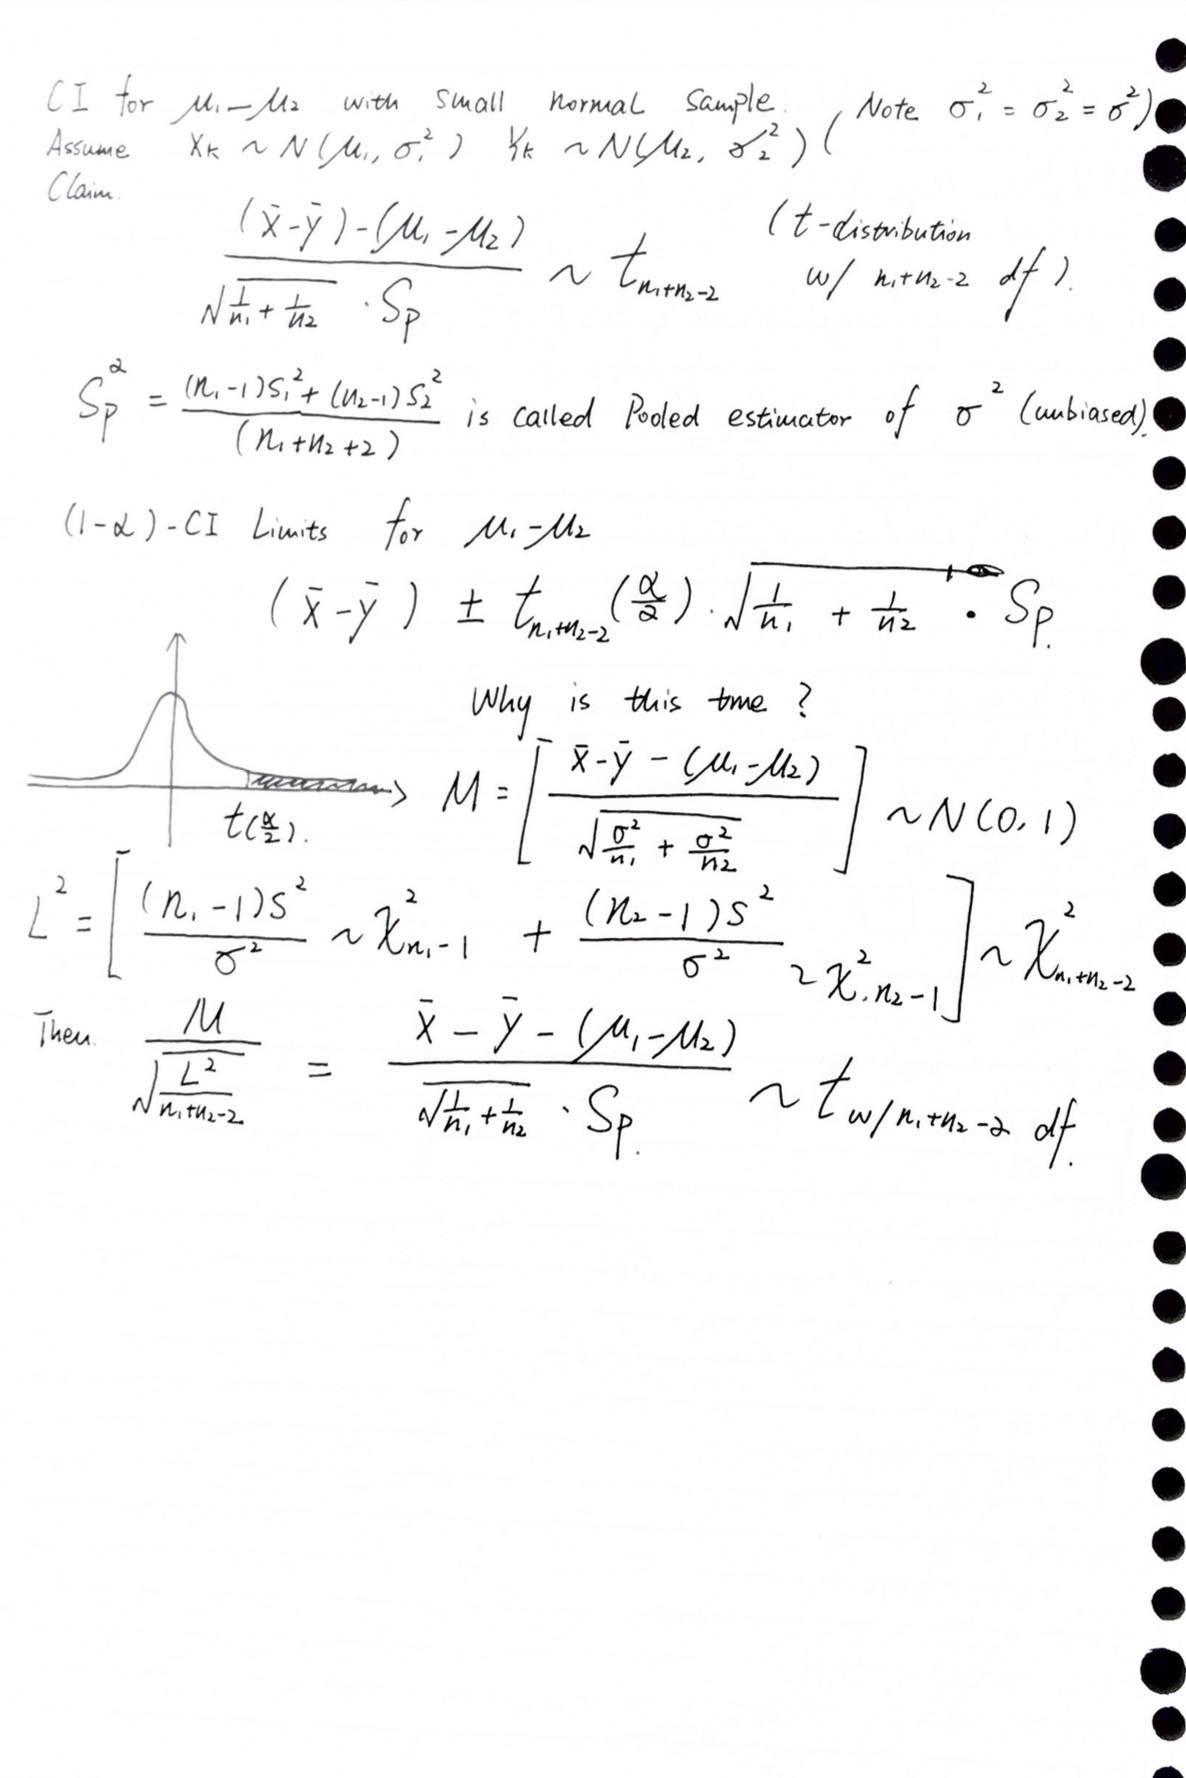 CI for μ₁-μ₂ with small normal sample. (Note σ₁² = σ₂² = σ²)
Assume X_K ~ N(μ₁, σ₁²) Y_K ~ N(μ₂, σ₂²)
Claim.
((x̄-ȳ)-(μ₁-μ₂))/(√(1/n₁ + 1/n₂) · Sp) ~ t_{n₁+n₂-2} (t-distribution
w/ n₁+n₂-2 df).
Sp² = ((n₁-1)S₁² + (n₂-1)S₂²)/(n₁+n₂+2) is called Pooled estimator of σ² (unbiased).
(1-α)-CI Limits for μ₁-μ₂
(x̄-ȳ) ± t_{n₁+n₂-2}(α/2) · √(1/n₁ + 1/n₂) · Sp.
Why is this true?
t(α/2).
M = [(x̄-ȳ - (μ₁-μ₂))/√(σ²/n₁ + σ²/n₂)] ~ N(0, 1)
L² = [(n₁-1)S²/σ² ~ χ²_{n₁-1} + (n₂-1)S²/σ² ~ χ²_{n₂-1}] ~ χ²_{n₁+n₂-2}
Then. M/√(L²/(n₁+n₂-2)) = (x̄ - ȳ - (μ₁-μ₂))/(√(1/n₁ + 1/n₂) · Sp.) ~ t w/ n₁+n₂-2 df.